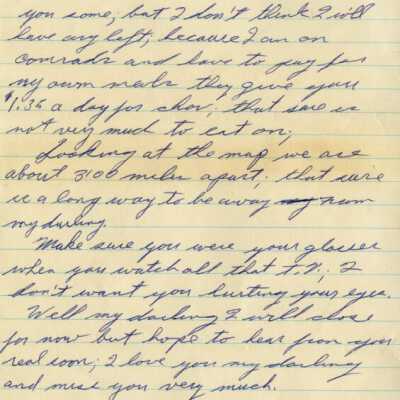 you some; but I don't think I will
have any left, because I am on
comrads and have to pay for
my own meals they give you
$1.36 a day for chov; that sure is
not very much to eat on;
Looking at the map we are
about 3100 miles apart; that sure
is a long way to be away my from
my darling.
Make sure you were your glasses
when you watch all that T.V.; I
don't want you hurting your eyes.
Well my darling I will close
for now but hope to hear from you
real soon; I love you my darling
and miss you very much.